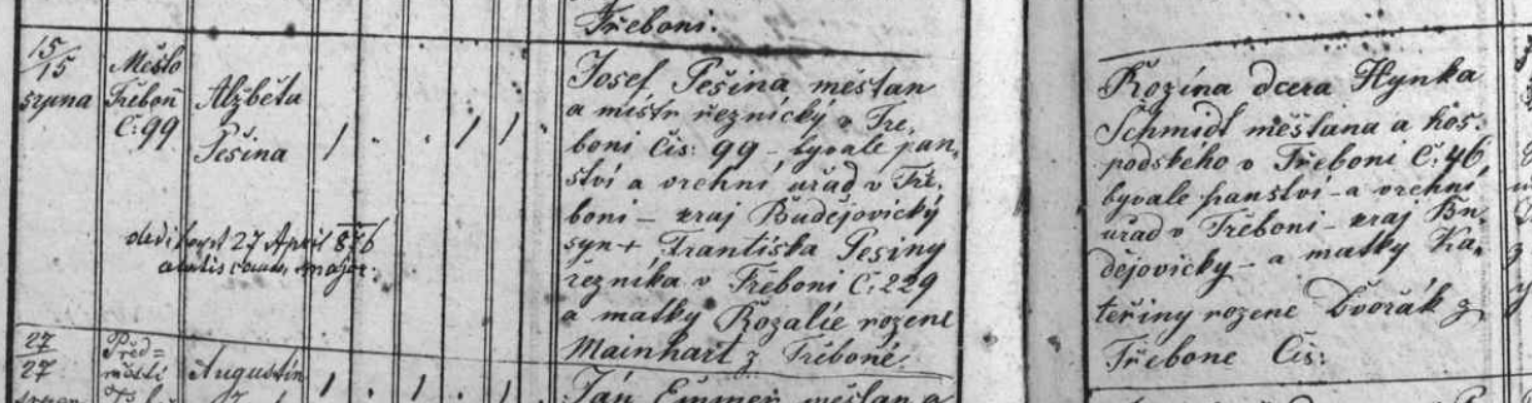 Třeboni.
15/15
srpna
Město
Třeboň
Č: 99
Alžběta
Pešina
1 . . 1 1 .
Josef Pešina měštan
a mistr řeznický v Tře,
boni Čis: 99 – byvale pan,
ství a vrchní uřad v Tře,
boni – kraj Budějovický
syn + Františka Pesiny
řezníka v Třeboni Č: 229
a matky Rozalie rozené
Mainhart z Třeboně.
Rozína dcera Hynka
Schmidt měštana a hos:
podského v Třeboni Č: 46,
byvale panství – a vrchní
uřad v Třeboni – kraj Bu,
dějovický – a matky Ka,
teřiny rozene Dvořák z
Třebone Čis:
27 April 876
27/27
Před=
městí
Augustin
1 . 1 . 1 .
Ján měštan a